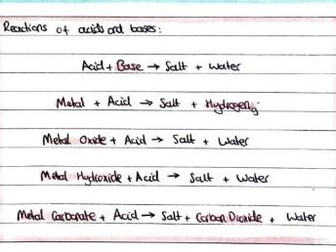 Reactions of acids and bases:
Acid + Base → Salt + Water
Metal + Acid → Salt + Hydrogen
Metal Oxide + Acid → Salt + Water
Metal Hydroxide + Acid → Salt + Water
Metal Carbonate + Acid → Salt + Carbon Dioxide + Water